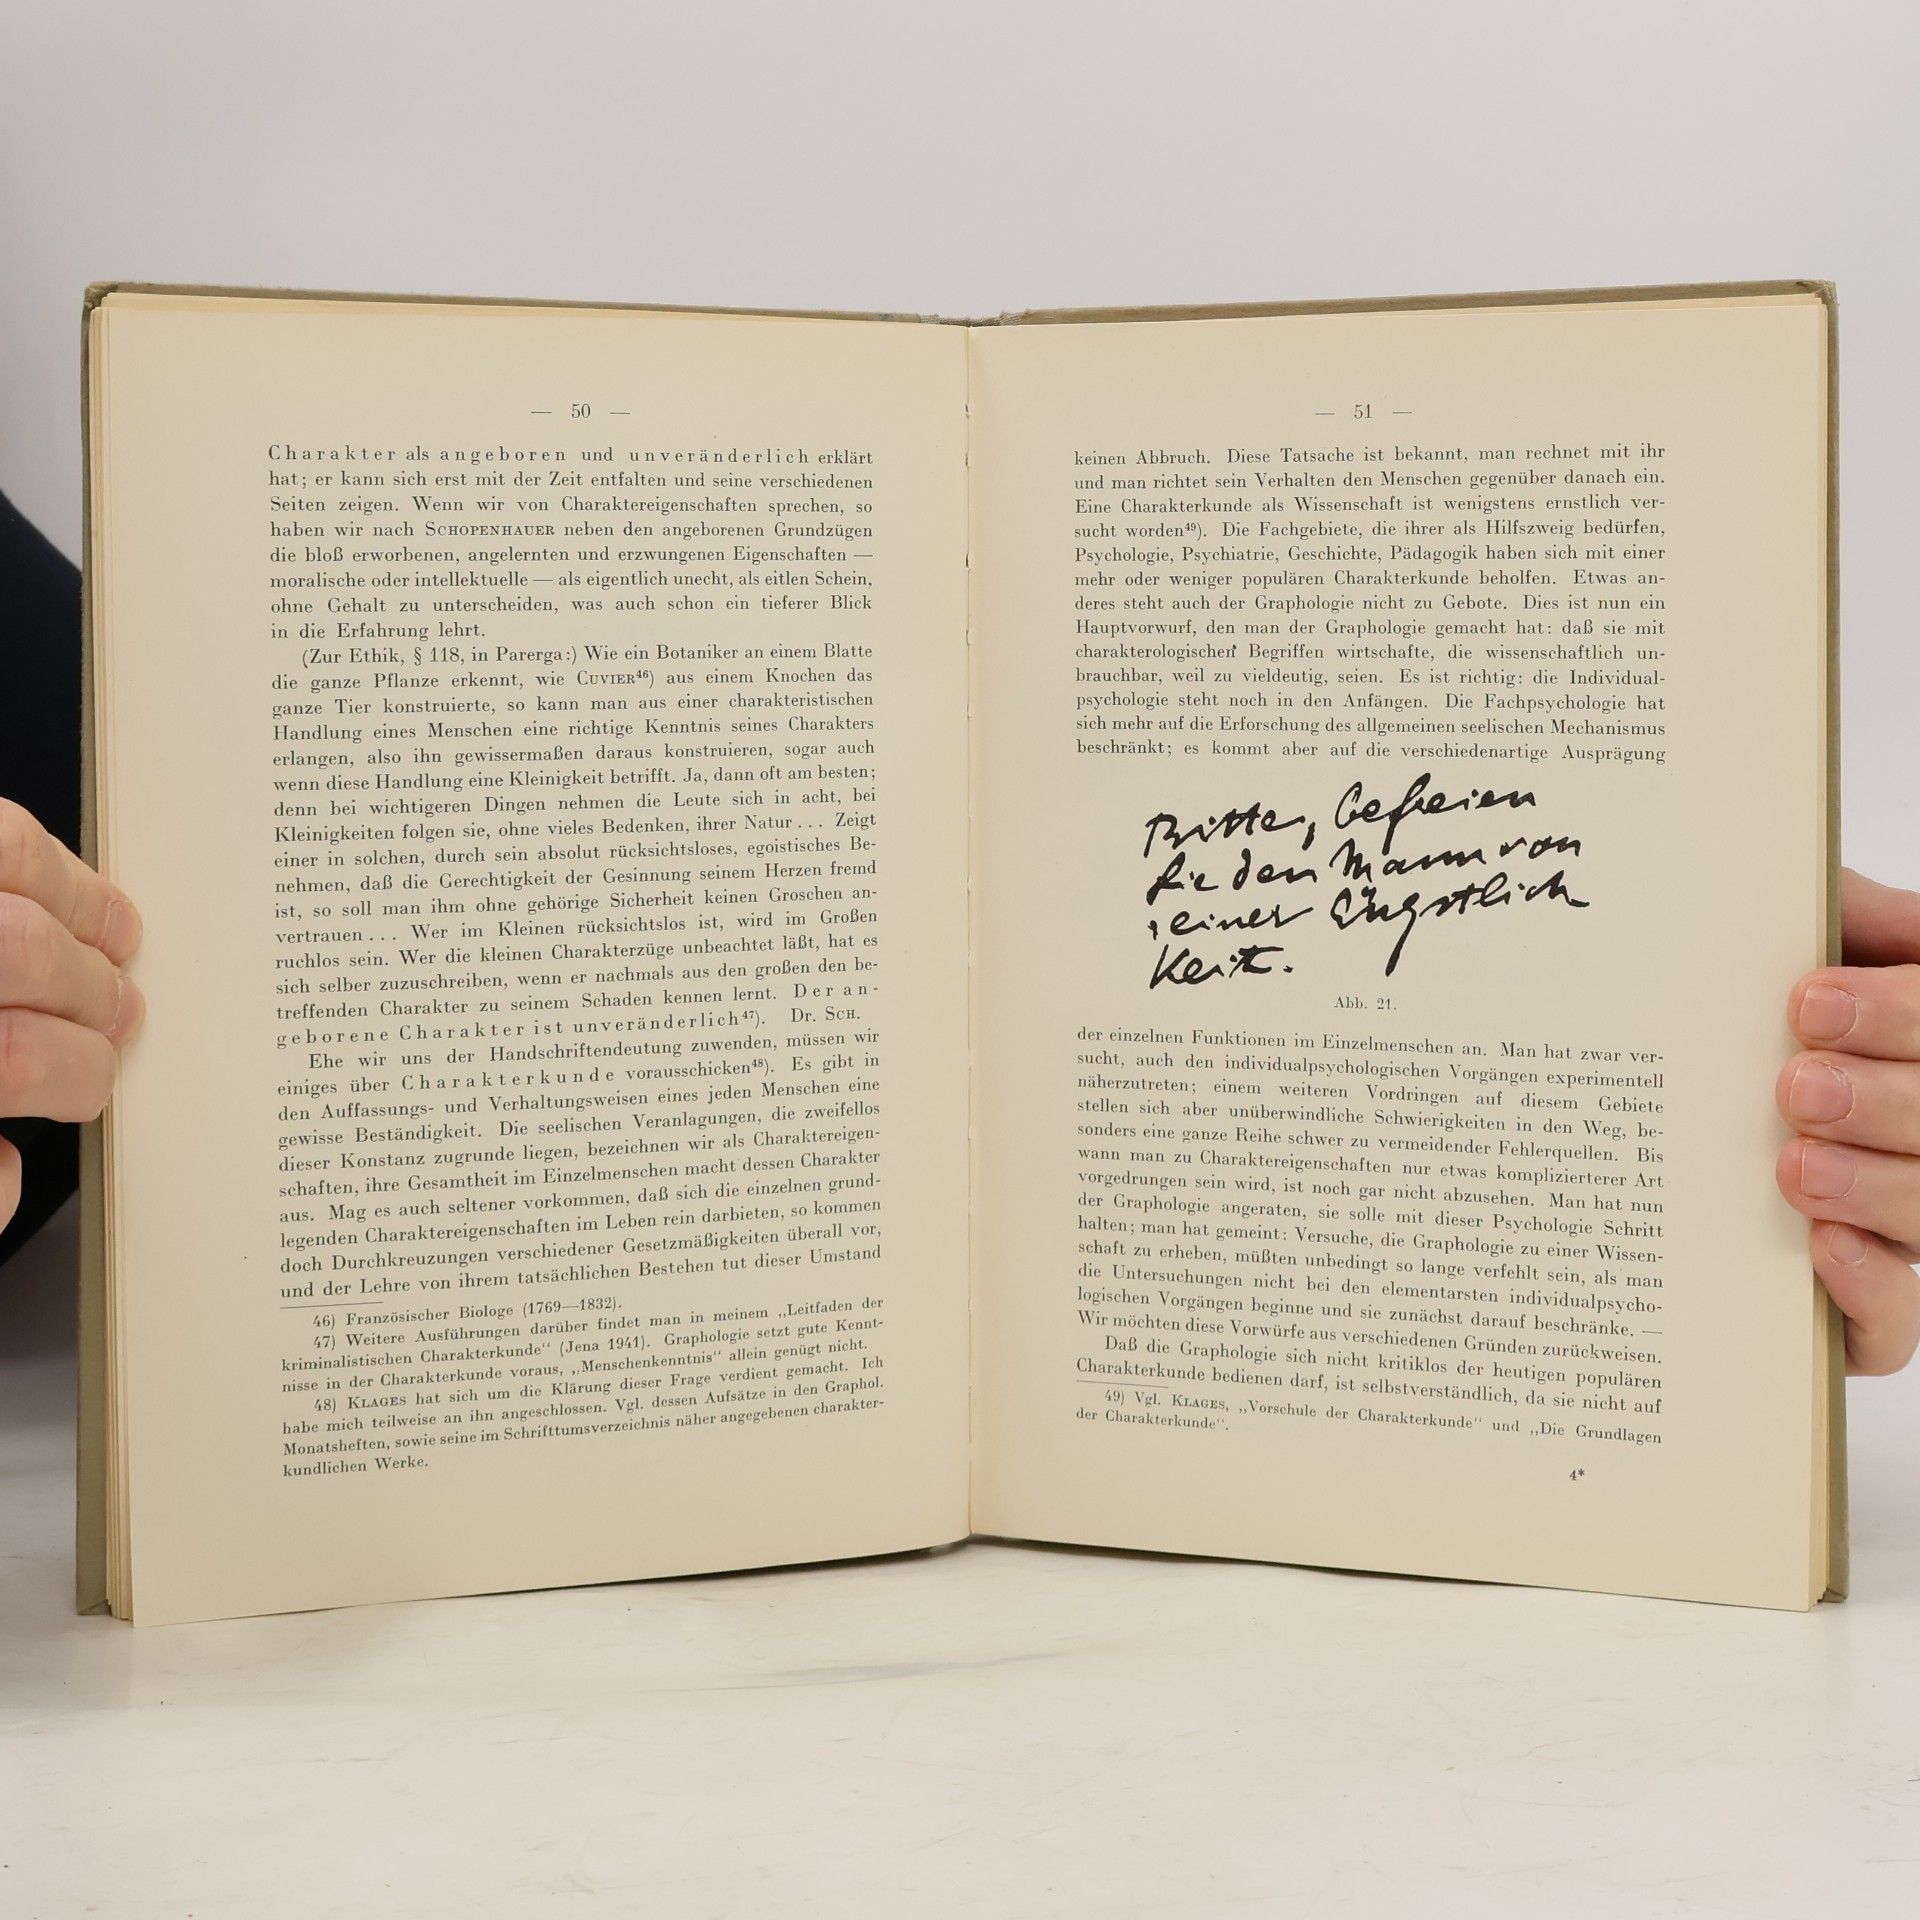 — 50 —
Charakter als angeboren und unveränderlich erklärt
hat; er kann sich erst mit der Zeit entfalten und seine verschiedenen
Seiten zeigen. Wenn wir von Charaktereigenschaften sprechen, so
haben wir nach SCHOPENHAUER neben den angeborenen Grundzügen
die bloß erworbenen, angelernten und erzwungenen Eigenschaften —
moralische oder intellektuelle — als eigentlich unecht, als eitlen Schein,
ohne Gehalt zu unterscheiden, was auch schon ein tieferer Blick
in die Erfahrung lehrt.
(Zur Ethik, § 118, in Parerga:) Wie ein Botaniker an einem Blatte
die ganze Pflanze erkennt, wie CUVIER⁴⁶) aus einem Knochen das
ganze Tier konstruierte, so kann man aus einer charakteristischen
Handlung eines Menschen eine richtige Kenntnis seines Charakters
erlangen, also ihn gewissermaßen daraus konstruieren, sogar auch
wenn diese Handlung eine Kleinigkeit betrifft. Ja, dann oft am besten;
denn bei wichtigeren Dingen nehmen die Leute sich in acht, bei
Kleinigkeiten folgen sie, ohne vieles Bedenken, ihrer Natur... Zeigt
einer in solchen, durch sein absolut rücksichtsloses, egoistisches Be-
nehmen, daß die Gerechtigkeit der Gesinnung seinem Herzen fremd
ist, so soll man ihm ohne gehörige Sicherheit keinen Groschen an-
vertrauen... Wer im Kleinen rücksichtslos ist, wird im Großen
ruchlos sein. Wer die kleinen Charakterzüge unbeachtet läßt, hat es
sich selber zuzuschreiben, wenn er nachmals aus den großen den be-
treffenden Charakter zu seinem Schaden kennen lernt. Der an-
geborene Charakter ist unveränderlich⁴⁷). Dr. SCH.
Ehe wir uns der Handschriftendeutung zuwenden, müssen wir
einiges über Charakterkunde vorausschicken⁴⁸). Es gibt in
den Auffassungs- und Verhaltungsweisen eines jeden Menschen eine
gewisse Beständigkeit. Die seelischen Veranlagungen, die zweifellos
dieser Konstanz zugrunde liegen, bezeichnen wir als Charaktereigen-
schaften, ihre Gesamtheit im Einzelmenschen macht dessen Charakter
aus. Mag es auch seltener vorkommen, daß sich die einzelnen grund-
legenden Charaktereigenschaften im Leben rein darbieten, so kommen
doch Durchkreuzungen verschiedener Gesetzmäßigkeiten überall vor,
und der Lehre von ihrem tatsächlichen Bestehen tut dieser Umstand
46) Französischer Biologe (1769—1832).
47) Weitere Ausführungen darüber findet man in meinem „Leitfaden der
kriminalistischen Charakterkunde“ (Jena 1941). Graphologie setzt gute Kennt-
nisse in der Charakterkunde voraus, „Menschenkenntnis“ allein genügt nicht.
48) KLAGES hat sich um die Klärung dieser Frage verdient gemacht. Ich
habe mich teilweise an ihn angeschlossen. Vgl. dessen Aufsätze in den Graphol.
Monatsheften, sowie seine im Schrifttumsverzeichnis näher angegebenen charakter-
kundlichen Werke.
— 51 —
keinen Abbruch. Diese Tatsache ist bekannt, man rechnet mit ihr
und man richtet sein Verhalten den Menschen gegenüber danach ein.
Eine Charakterkunde als Wissenschaft ist wenigstens ernstlich ver-
sucht worden⁴⁹). Die Fachgebiete, die ihrer als Hilfszweig bedürfen,
Psychologie, Psychiatrie, Geschichte, Pädagogik haben sich mit einer
mehr oder weniger populären Charakterkunde beholfen. Etwas an-
deres steht auch der Graphologie nicht zu Gebote. Dies ist nun ein
Hauptvorwurf, den man der Graphologie gemacht hat: daß sie mit
charakterologischen Begriffen wirtschafte, die wissenschaftlich un-
brauchbar, weil zu vieldeutig, seien. Es ist richtig: die Individual-
psychologie steht noch in den Anfängen. Die Fachpsychologie hat
sich mehr auf die Erforschung des allgemeinen seelischen Mechanismus
beschränkt; es kommt aber auf die verschiedenartige Ausprägung
Bitte, befreien
Sie den Mann von
seiner Ängstlich
Keit.
Abb. 21.
der einzelnen Funktionen im Einzelmenschen an. Man hat zwar ver-
sucht, auch den individualpsychologischen Vorgängen experimentell
näherzutreten; einem weiteren Vordringen auf diesem Gebiete
stellen sich aber unüberwindliche Schwierigkeiten in den Weg, be-
sonders eine ganze Reihe schwer zu vermeidender Fehlerquellen. Bis
wann man zu Charaktereigenschaften nur etwas komplizierterer Art
vorgedrungen sein wird, ist noch gar nicht abzusehen. Man hat nun
der Graphologie angeraten, sie solle mit dieser Psychologie Schritt
halten; man hat gemeint: Versuche, die Graphologie zu einer Wissen-
schaft zu erheben, müßten unbedingt so lange verfehlt sein, als man
die Untersuchungen nicht bei den elementarsten individualpsycho-
logischen Vorgängen beginne und sie zunächst darauf beschränke. —
Wir möchten diese Vorwürfe aus verschiedenen Gründen zurückweisen.
Daß die Graphologie sich nicht kritiklos der heutigen populären
Charakterkunde bedienen darf, ist selbstverständlich, da sie nicht auf
49) Vgl. KLAGES, „Vorschule der Charakterkunde“ und „Die Grundlagen
der Charakterkunde“.
4*